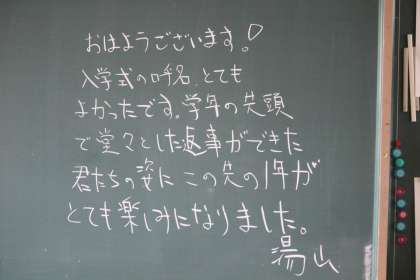 おはようございます!
入学式の呼名、とても
よかったです。学年の先頭
で堂々とした返事ができた
君たちの姿に この先の1年が
とても楽しみになりました。
湯山